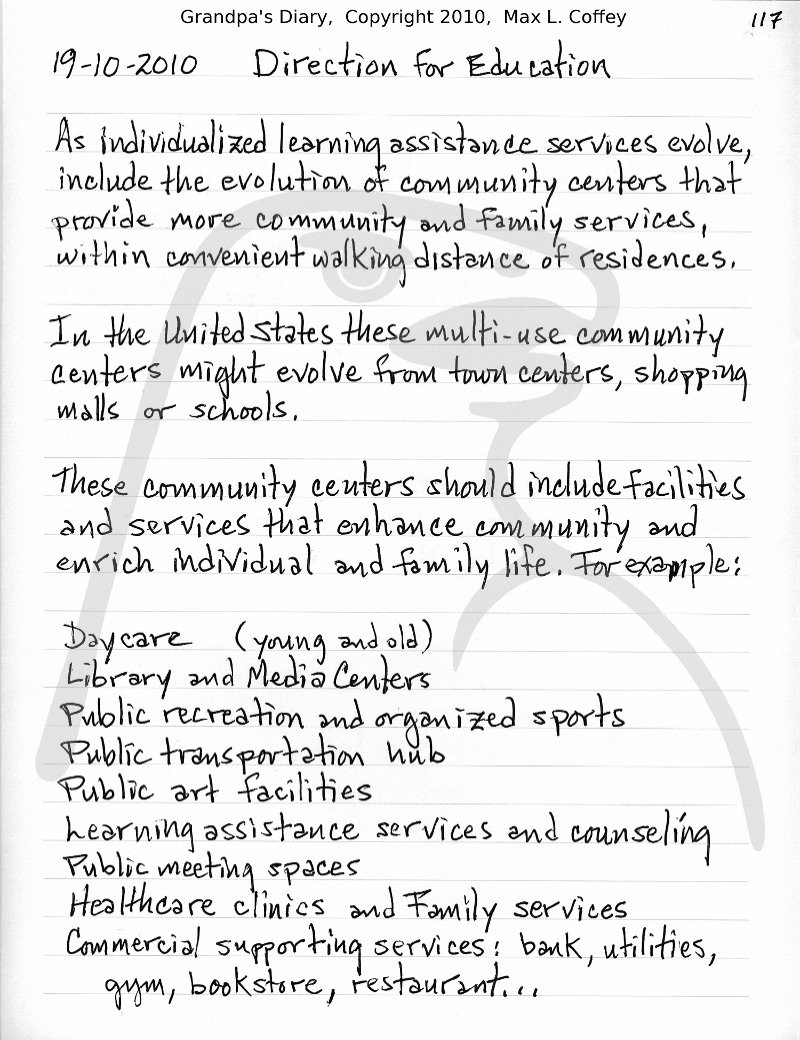 Grandpa's Diary, Copyright 2010, Max L. Coffey
117
19-10-2010 Direction for Education
As individualized learning assistance services evolve,
include the evolution of community centers that
provide more community and family services,
within convenient walking distance of residences.
In the United States these multi-use community
centers might evolve from town centers, shopping
malls or schools.
These community centers should include facilities
and services that enhance community and
enrich individual and family life. For example:
Daycare (young and old)
Library and Media Centers
Public recreation and organized sports
Public transportation hub
Public art facilities
Learning assistance services and counseling
Public meeting spaces
Healthcare clinics and Family services
Commercial supporting services: bank, utilities,
gym, bookstore, restaurant...